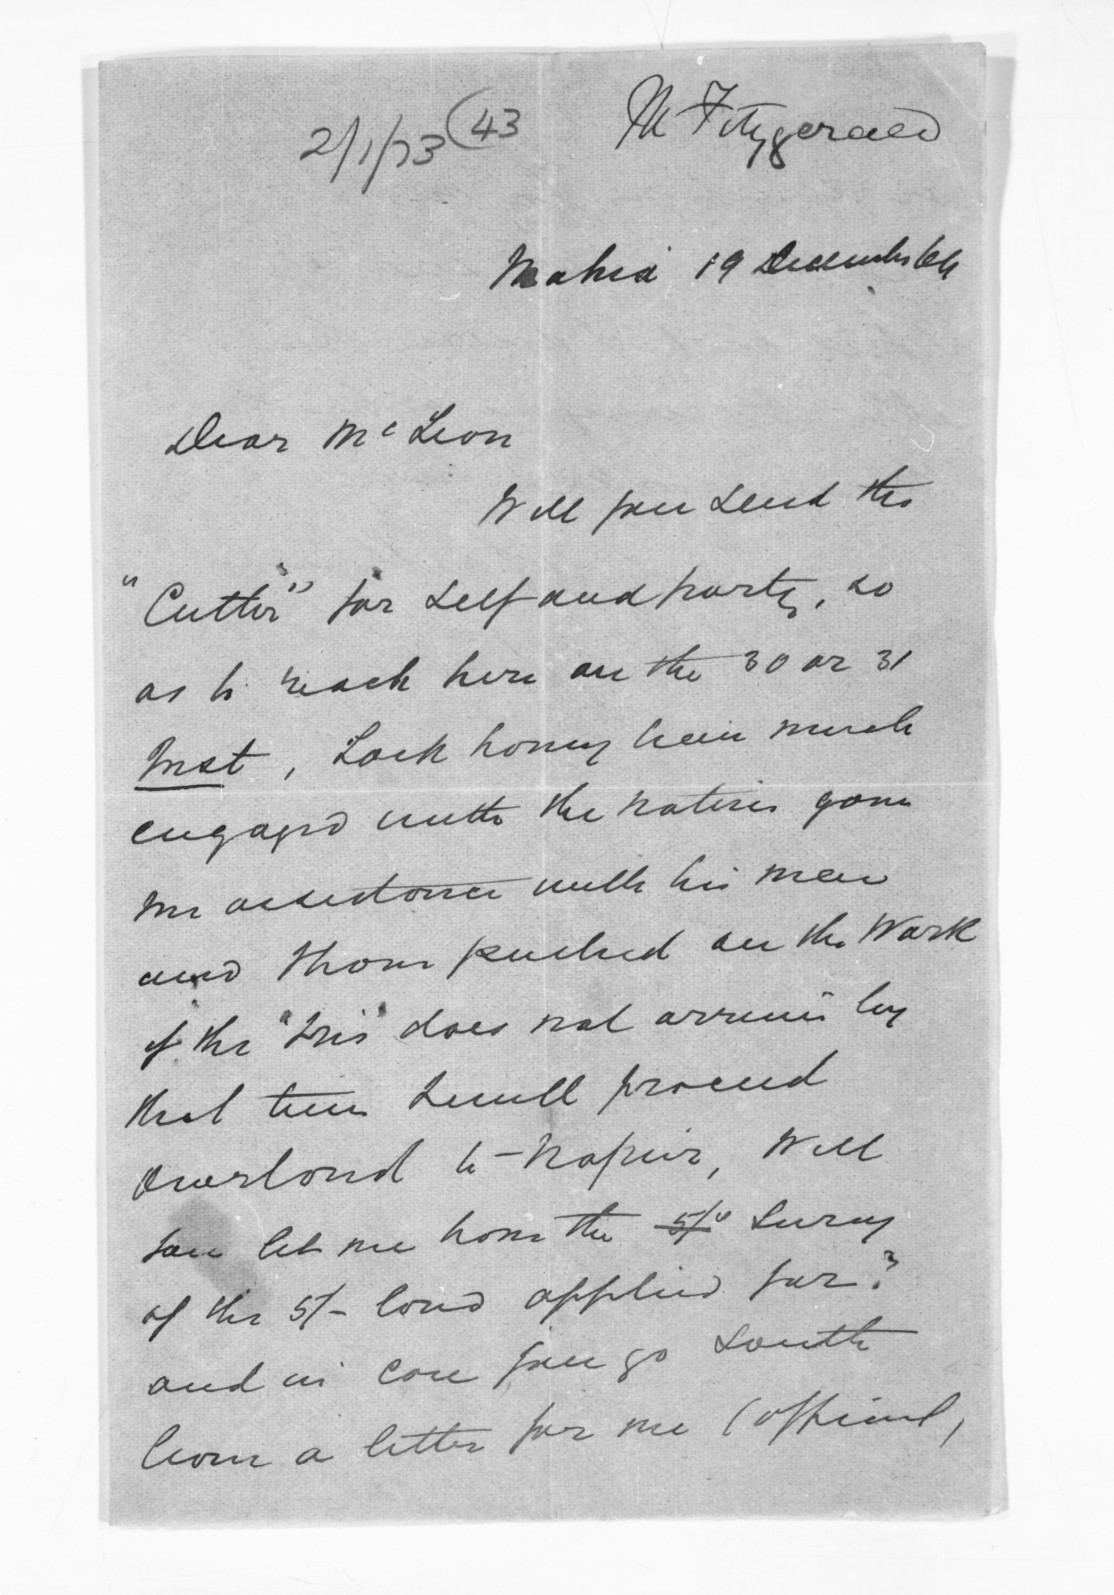 2/1/73 (43
M Fitzgerald
Mahia 19 December 64
Dear McLean
Will you send the
"Cutter" for self and party, so
as to reach here on the 30 or 31
Inst, Lock having been much
engaged with the natives gave
me assistance with his men
and I have pushed on the Work
if the "Iris" does not arrive by
that time I will proceed
Overland to Napier, Will
you let me have the 5/- survey
of the 5/- land applied for?
and in case you go South
leave a letter for me (official)